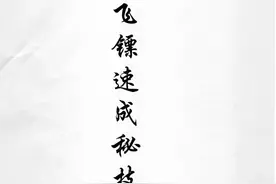 飞镖速成秘技